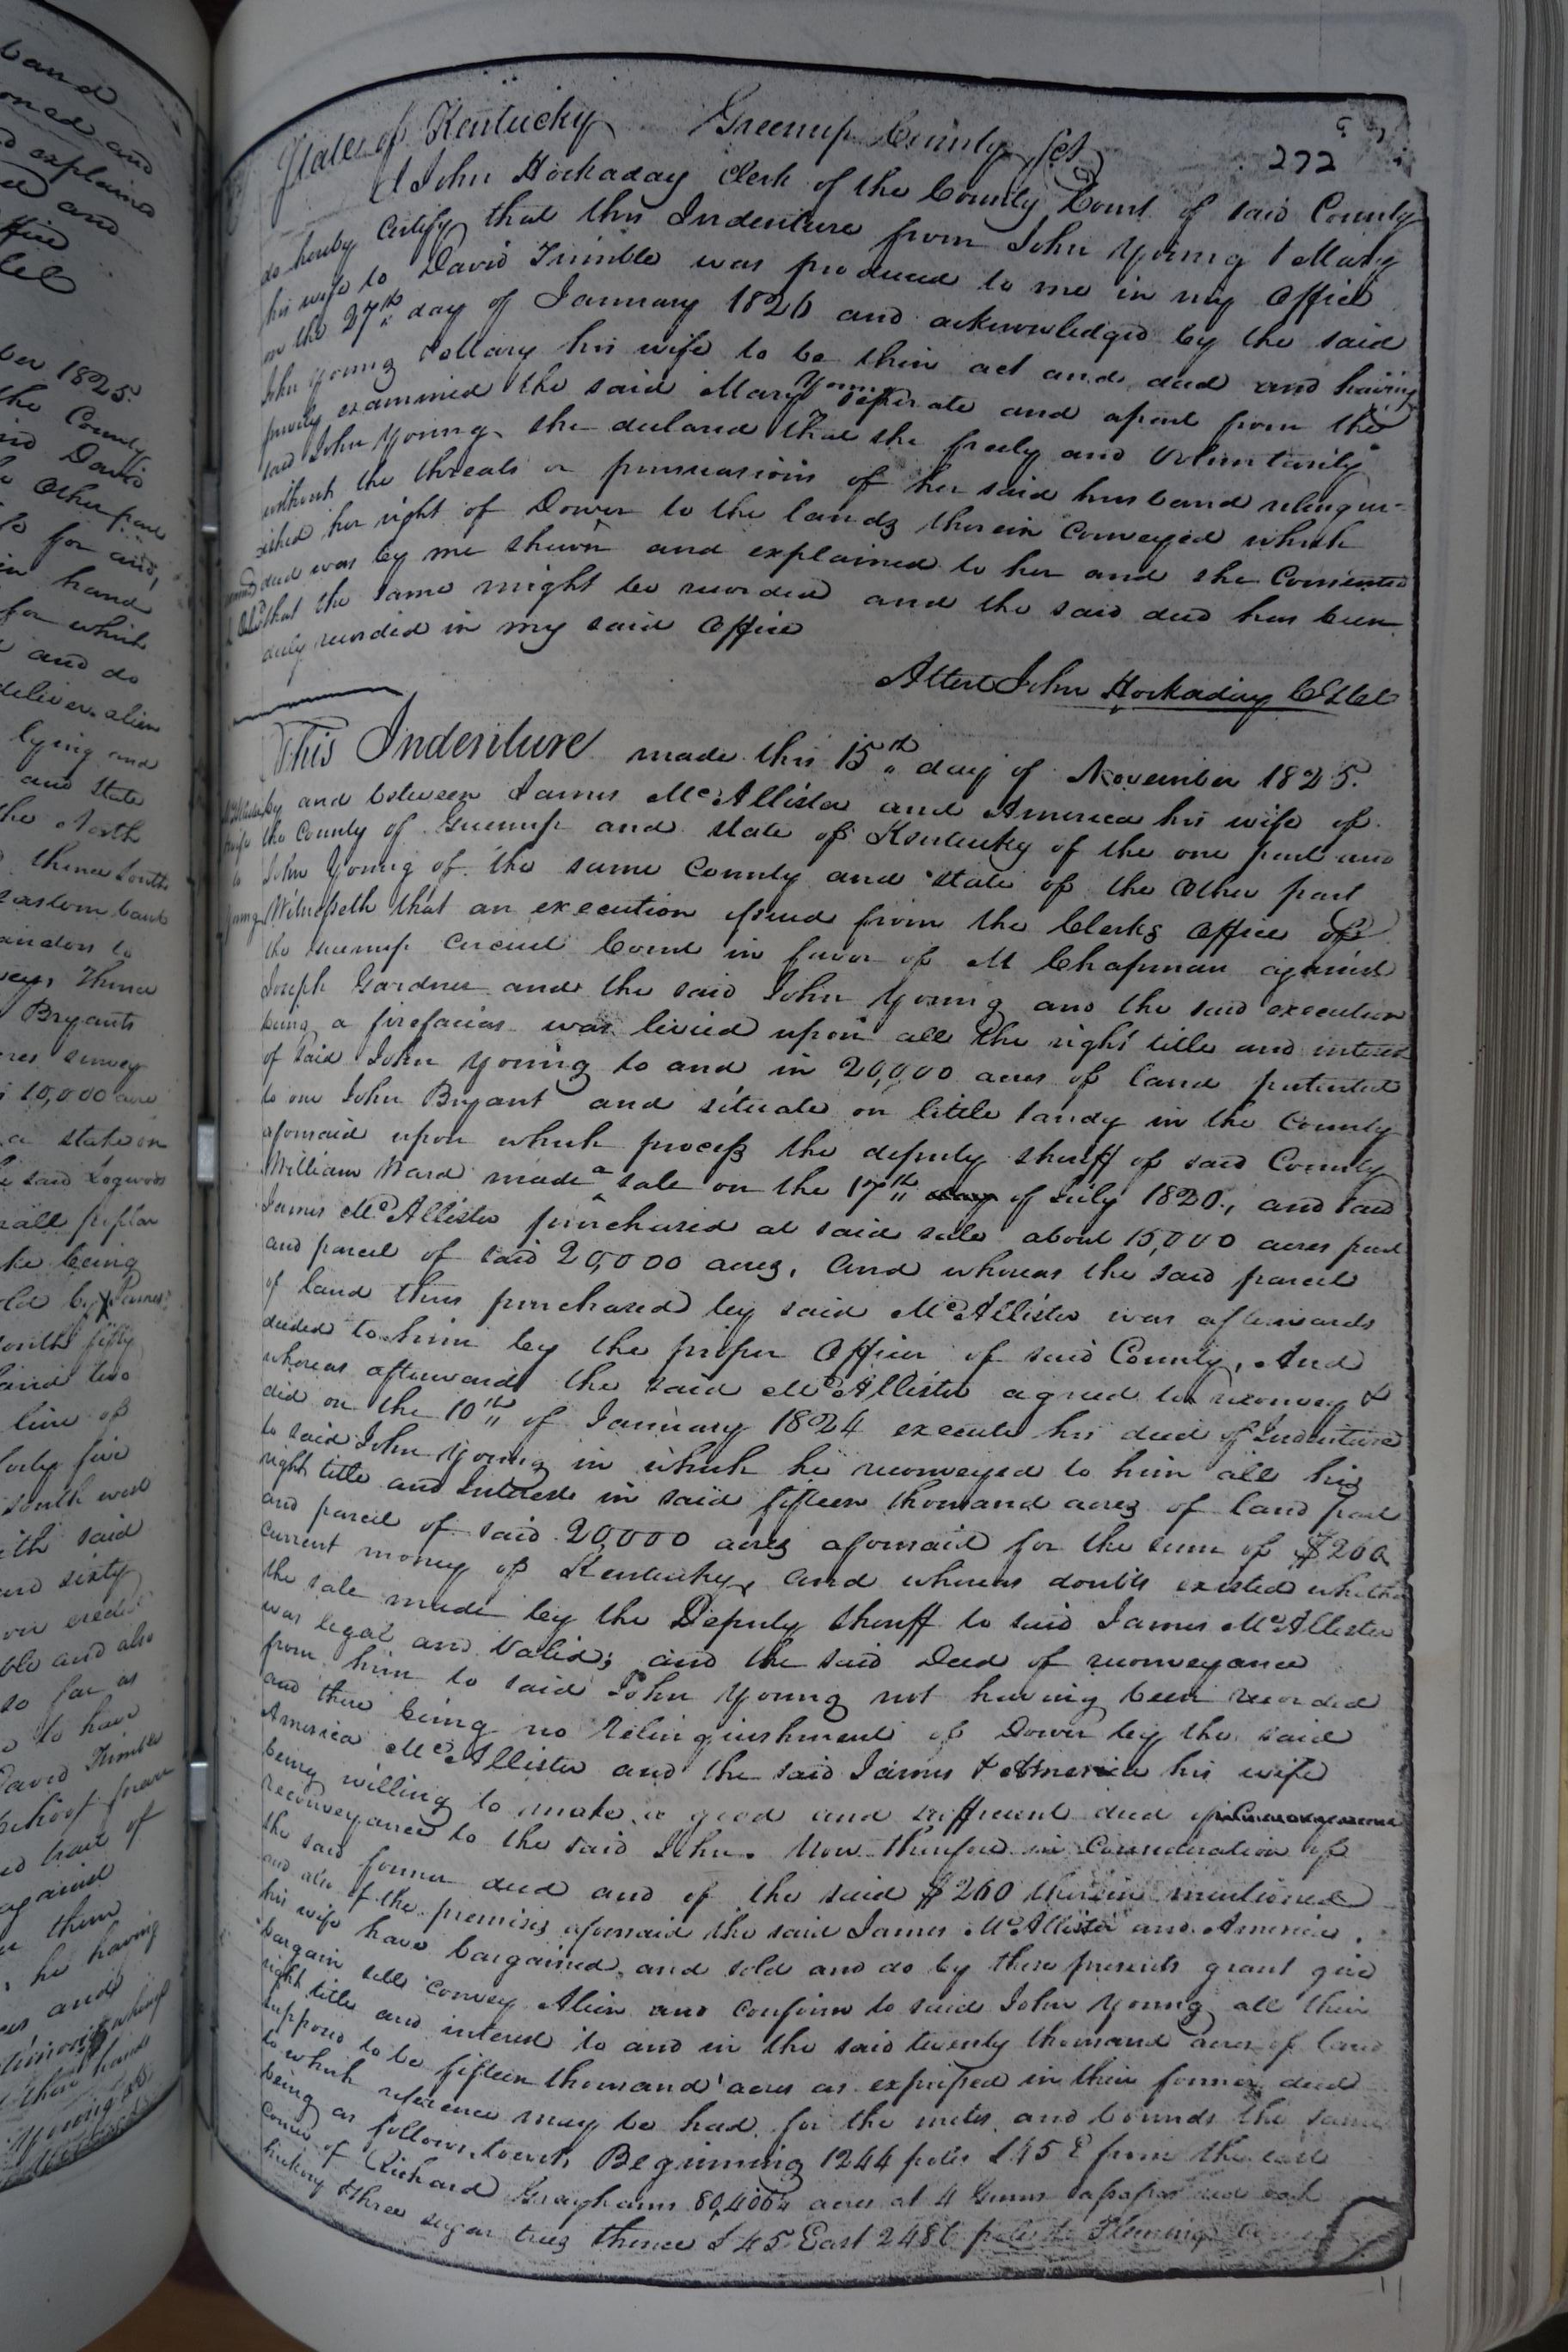 band
oned and
explained
and
ffice
ber 1825.
the County
David
Other part
for and
in hand
for which
and do
deliver alien
lying and
and State
the North
thence South
eastern bank
to
Thence
Bryants
acres survey
10,000 acre
a stake on
said Logwoods
small poplar
being
sold by James
South fifty
two
line of
forty five
South west
with said
and sixty
ble and also
so far as
to have
David Trimble
behoof
tract of
against
them
he having
and
whereof
their hand
Young
State of Kentucky Greenup County Sct
272
I John Hockaday Clerk of the County Court of said County
do hereby Certify that this Indenture from John Young & Mary
his wife to David Trimble was produced to me in my Office
on the 27th day of January 1826 and acknowledged by the said
John Young & Mary his wife to be their act and deed and having
privily examined the said Mary Young seperate and apart from the
said John Young, she declared that she freely and Voluntarily
without the threats or pursuasions of her said husband relinqu-
ished her right of Dower to the lands therein Conveyed which
deed was by me shewn and explained to her and she Consented
that the same might be recorded and the said deed has been
duly recorded in my said Office
Attest John Hockaday
This Indenture made this 15th day of November 1825.
by and between James McAllister and America his wife of
the County of Greenup and state of Kentucky of the one part and
to John Young of the same County and state of the Other part
Young Witnesseth that an execution issued from the Clerks Office of
the Greenup Circuit Court in favor of M Chapman against
Joseph Gardner and the said John Young and the said execution
being a firefacias was levied upon all the right title and interest
of said John Young to and in 20,000 acres of land patented
to one John Bryant and situate on little Sandy in the County
aforesaid upon which process the deputy sheriff of said County
William Ward made a sale on the 17th day of July 1820, and said
James McAllister purchased at said sale about 15,000 acres part
and parcel of said 20,000 acres, And whereas the said parcel
of land thus purchased by said McAllister was afterwards
deeded to him by the proper Officer of said County, And
whereas afterwards the said McAllister agreed to reconvey &
did on the 10th of January 1824 execute his deed of Indenture
to said John Young in which he reconveyed to him all his
right title and Interest in said fifteen thousand acres of land part
and parcel of said 20,000 acres aforesaid for the sum of $260
current money of Kentucky, and whereas doubts existed whether
the sale made by the Deputy Sheriff to said James McAllister
was legal and Valid; and the said Deed of reconveyance
from him to said John Young not having been recorded
and there being no relinquishment of Dower by the said
America McAllister and the said James & America his wife
being willing to make a good and sufficient deed of
reconveyance to the said John. Now therefore in Consideration of
the said former deed and of the said $260 therein mentioned
and also of the premises aforesaid the said James McAllister and America
his wife have bargained and sold and do by these presents grant give
bargain sell convey Alien and Confirm to said John Young all their
right title and interest to and in the said twenty thousand acres of land
supposed to be fifteen thousand acres as expressed in their former deed
to which reference may be had for the metes and bounds the same
being as follows, towit, Beginning 1244 poles S 45 E from the east
corner of Richard Grayhams acres at 4 Gums a red oak
hickory & three sugar trees thence S 45 East 2486 poles to Flemings